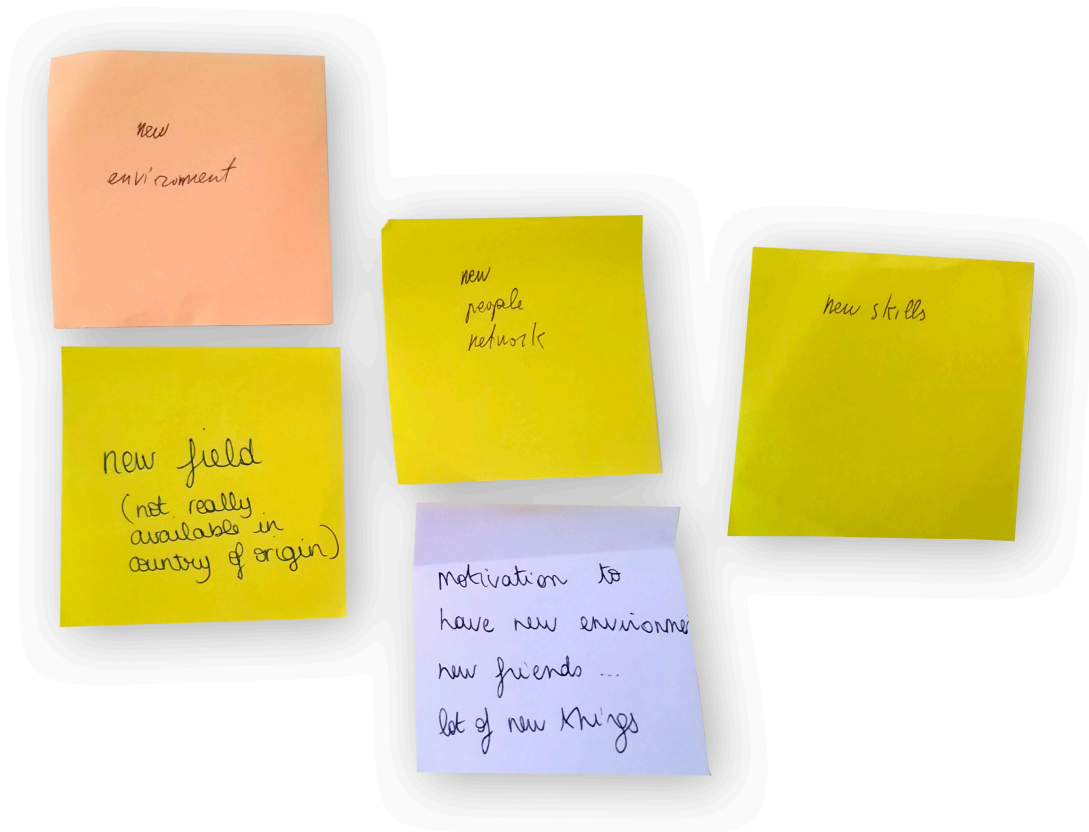 new
enviroment
new field
(not really
available in
country of origin)
new
people
network
motivation to
have new environme
new friends ...
lot of new things
new skills